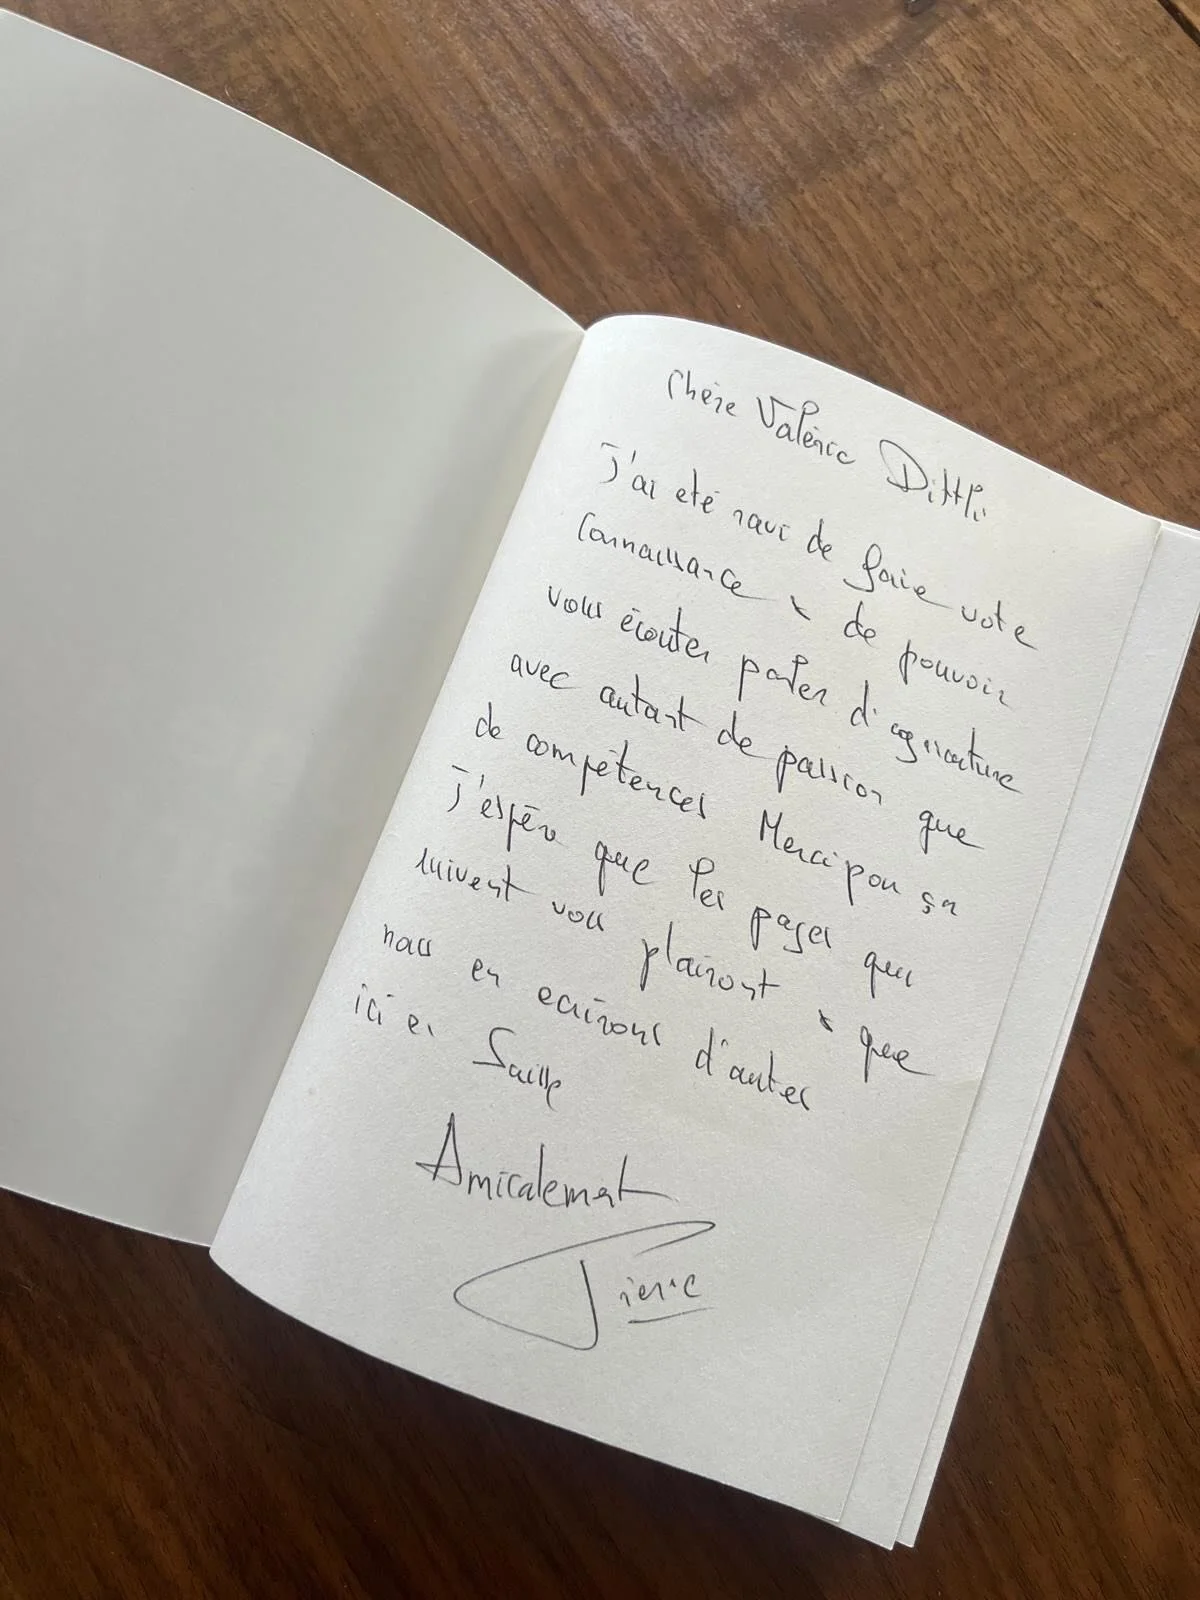 Chère Valérie Dittli
J'ai eté ravi de faire votre
connaissance & de pouvoir
vous écouter parler d'agriculture
avec autant de passion que
de compétences Merci pour ça
J'espère que les pages qui
suivent vous plairont & que
nous en écrirons d'autres
ici en Suisse
Amicalement
Pierre